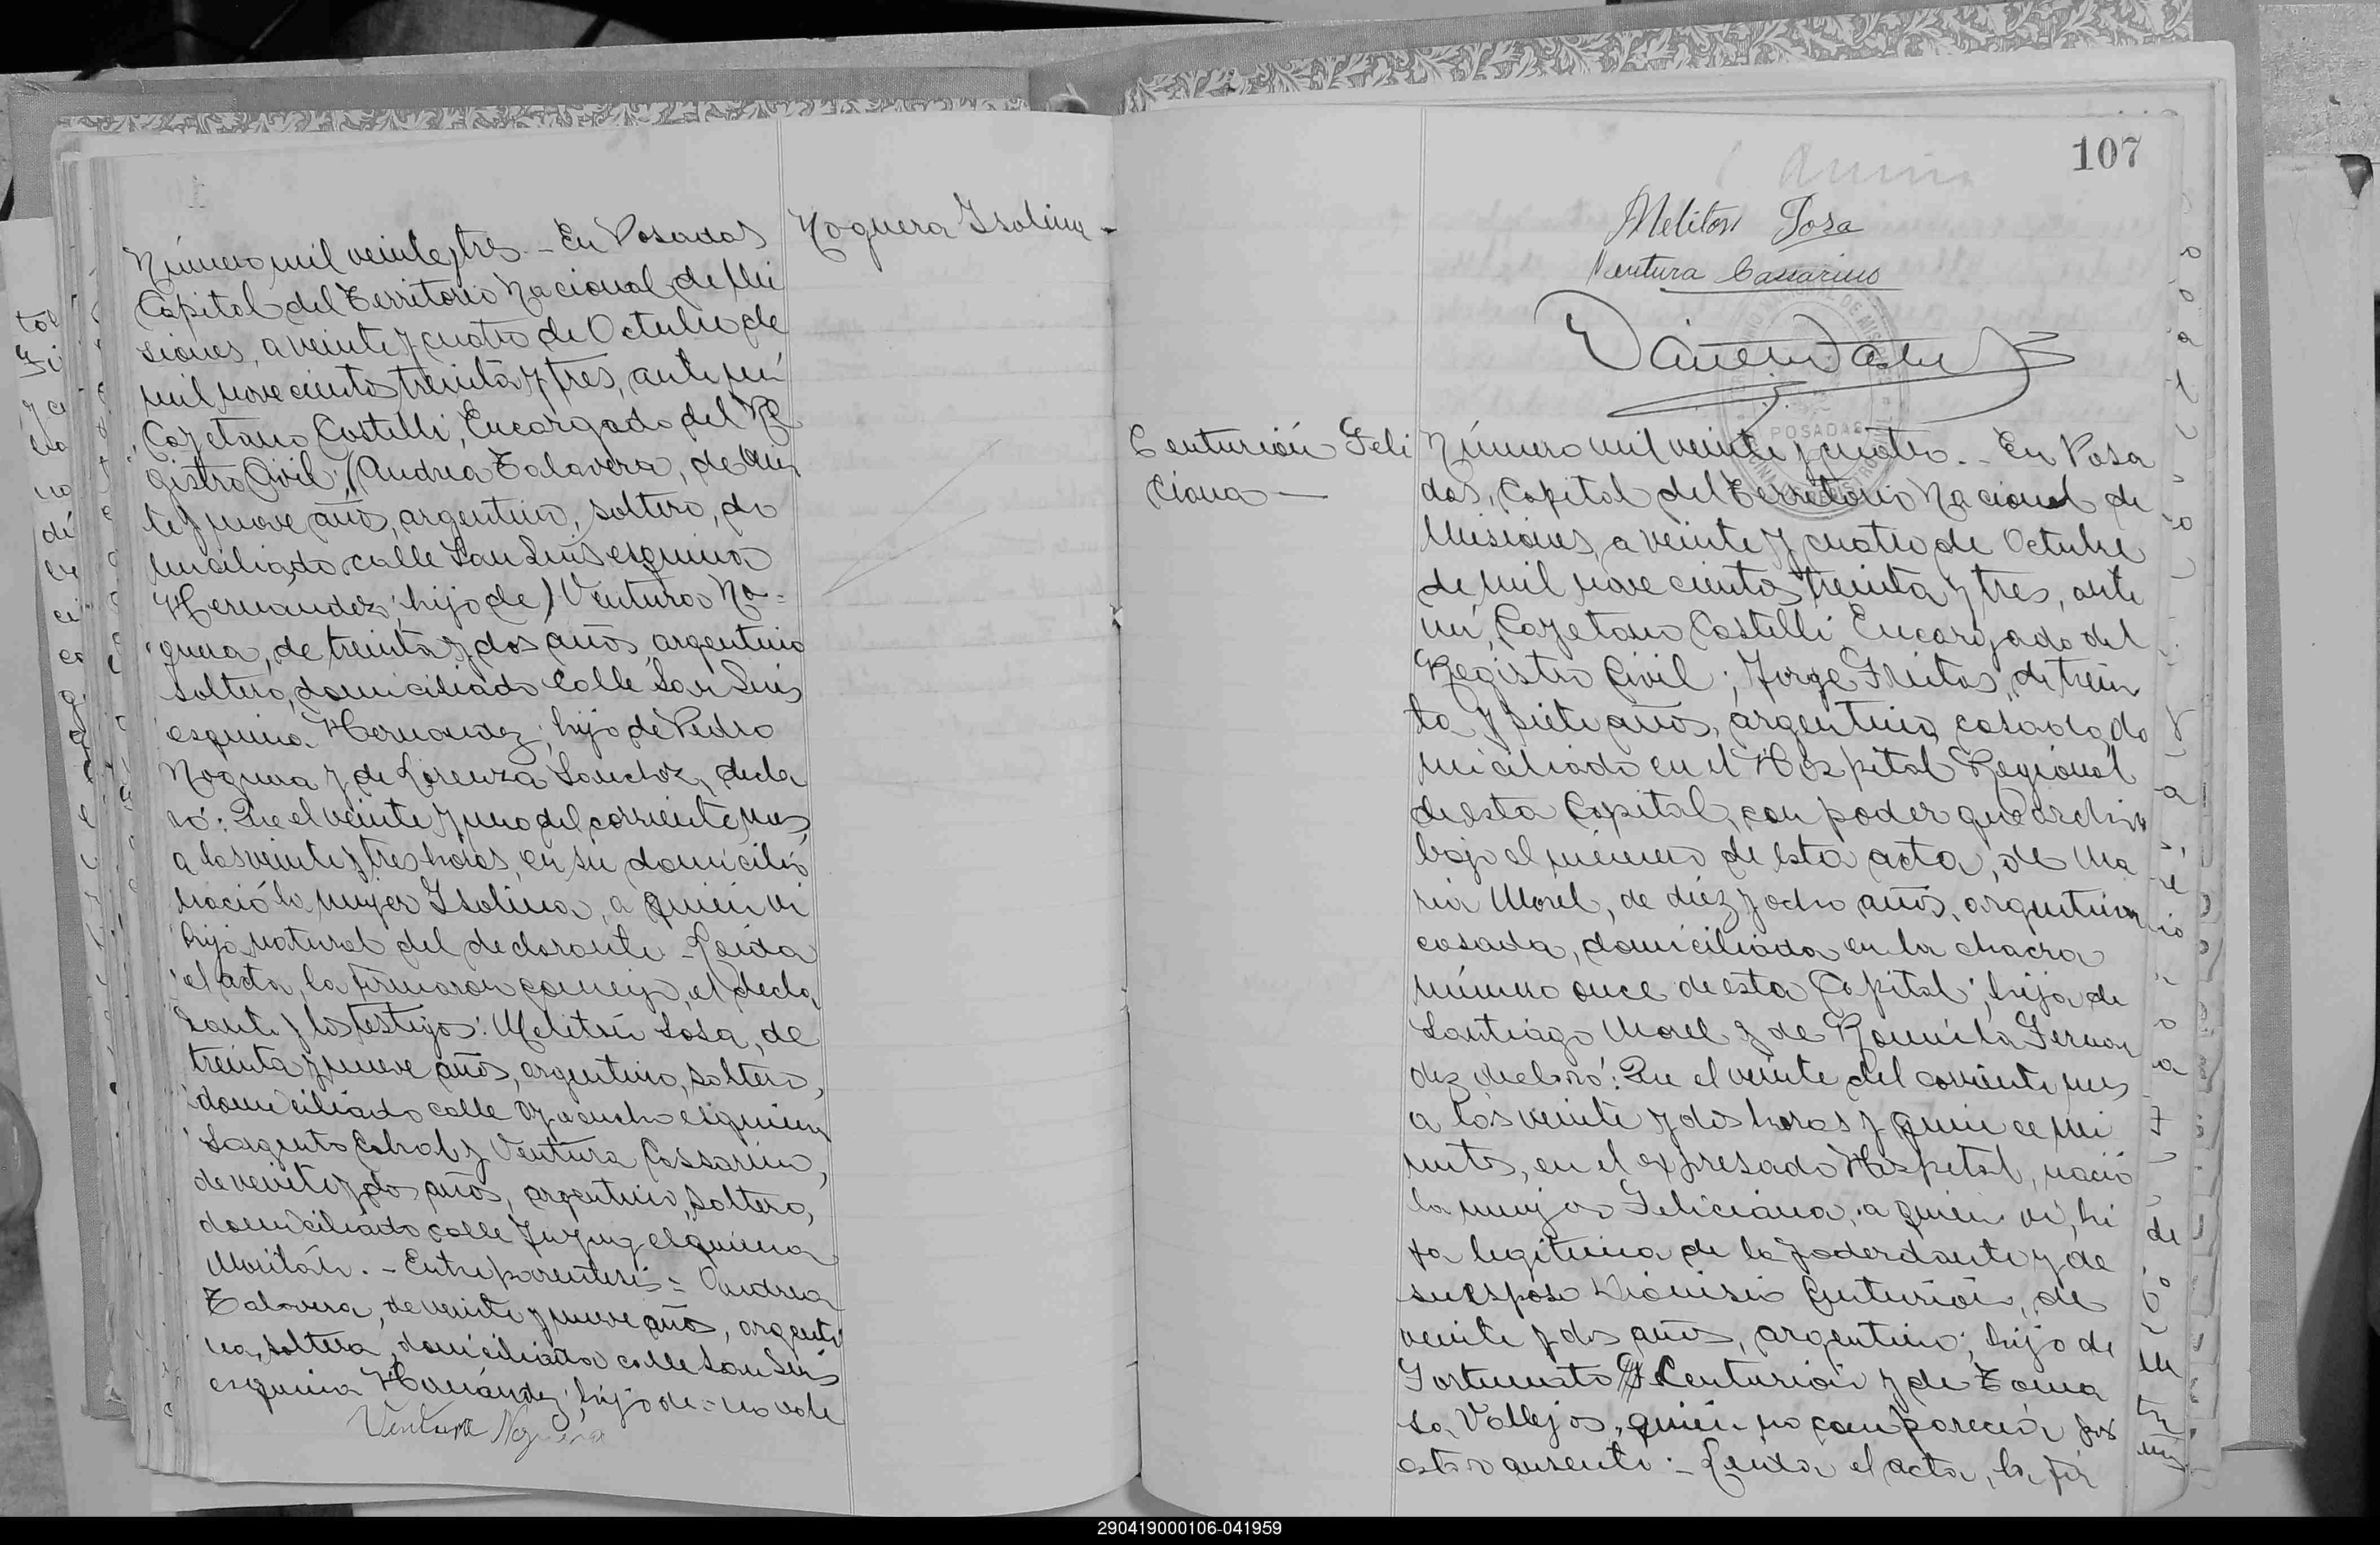 Número mil veinte y tres. - En Posadas
Capital del Territorio Nacional de Mi
siones, a veinte y cuatro de Octubre de
mil novecientos treinta y tres, ante mí
Cayetano Castelli, Encargado del Re
gistro Civil; (Andrea Talavera, de vein
te y nueve años, argentino, soltero, do
miciliado calle San Luis esquina
Hernández; hijo de) Ventura No-
guera, de treinta y dos años, argentino
soltero, domiciliado calle San Luis
esquina Hernandez; hijo de Pedro
Noguera y de Lorenza Sanchez, decla
ró: Que el veinte y uno del corriente mes,
a las veinte y tres horas, en su domicilio
nació la mujer Isolina, a quien vi
hija natural del declarante - Leida
el acta, la firmaron conmigo, el decla
rante y los testigos: Melitón Sosa, de
treinta y nueve años, argentino, soltero,
domiciliado calle Ayacucho esquina
Sargento Cabral y Ventura Cassarino,
de veinte y dos años, argentino, soltero,
domiciliado calle esquina
- Entre parentesis = Andrea
Talavera, de veinte y nueve años, argenti
na, soltera, domiciliada calle San Luis
esquina Hernández; hijo de: no vale
Ventura Noguera
Noguera Isolina -
107
Meliton Sosa
Ventura Cassarino
POSADAS
Centurión Feli
ciana —
Número mil veinte y cuatro. - En Posa
das, Capital del Territorio Nacional de
Misiones, a veinte y cuatro de Octubre
de mil novecientos treinta y tres, ante
mí, Cayetano Castelli Encargado del
Registro Civil; Jorge Freitas, de trein
ta y siete años, argentino, casado, do
miciliado en el Hospital Regional
de esta Capital, con poder que archivo
bajo el número de esta acta, de Ma
ria Morel, de diez y ocho años, argentina
casada, domiciliada en la chacra
número once de esta Capital; hija de
Santiago Morel y de Romila Fernan
dez declaró: Que el veinte del corriente mes
a las veinte y dos horas y quince mi
nutos, en el expresado Hospital, nació
la mujer Feliciana, a quien vi, hi
ja legítima de la poderdante y de
su esposo Dionisio Centurión, de
veinte y dos años, argentino; hijo de
Fortunato Centurión y de Toma
sa Vallejos, quien no compareció por
estar ausente. - Leida el acta, la fir
290419000106-041959